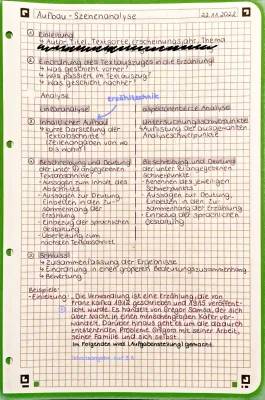 Aufbau - Szenenanalyse 22.11.2022
① Einleitung
↳ Autor, Titel, Textsorte, Erscheinungsjahr, Thema
② Einordnung des Textauszuges in die Erzählung
↳ Was geschieht vorher?
↳ Was passiert im Textauszug?
↳ Was geschieht nachher?
Analyse
Erzähltechnik
Linearanalyse
Aspektorientierte Analyse
③ Inhaltlicher Aufbau
↳ kurze Darstellung der
Textabschnitte
(Zeilenangaben von wo
bis wohin)
Untersuchungsschwerpunkte
↳ Auflistung der ausgewählten
Analyseschwerpunkte
④ Beschreibung und Deutung
der unter ③ eingeteilten
Textabschnitte
- Aussagen zum Inhalt des
Abschnitts
- Aussagen zur Deutung,
Einbetten in den Zu-
sammenhang der
Erzählung
- Einbezug der sprachlichen
Gestaltung
- Überleitung zum
nächsten Textabschnitt
Beschreibung und Deutung
der unter ③ angegebenen
Schwerpunkte
- Benennen des jeweiligen
Schwerpunktes
- Aussagen zur Deutung,
Einbetten in den Zu-
sammenhang der Erzählung
- Einbezug der sprachlichen
Gestaltung
⑤ Schluss
↳ Zusammenfassung der Ergebnisse
↳ Einordnung in einen größeren Bedeutungszusammenhang
↳ Bewertung
Beispiele:
- Einleitung: „Die Verwandlung ist eine Erzählung, die von
Franz Kafka 1912 geschrieben und 1915 veröffent-
licht wurde. Es handelt von Gregor Samsa, der sich
über Nacht in einen menschengroßen Käfer ver-
wandelt. Darüber hinaus geht es um die dadurch
entstehenden Probleme Gregors mit seiner Arbeit,
seiner Familie und sich selbst.
Im Folgenden wird (Aufgabenstellung) gemacht.